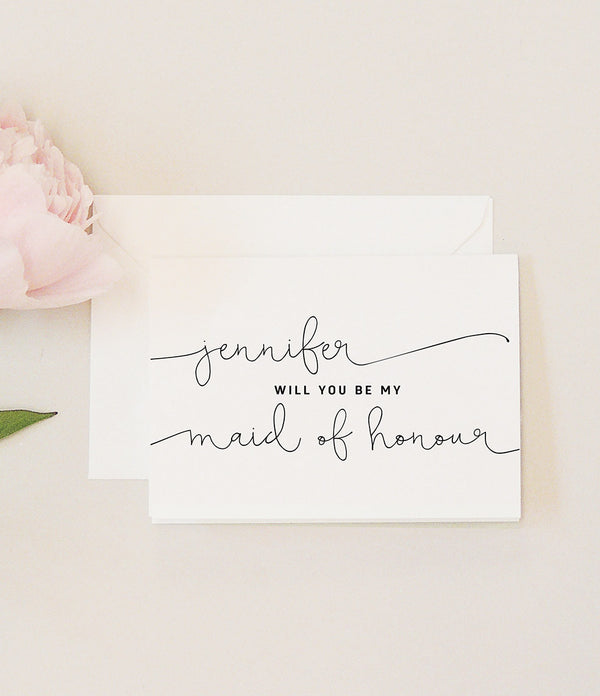 jennifer
WILL YOU BE MY
maid of honour